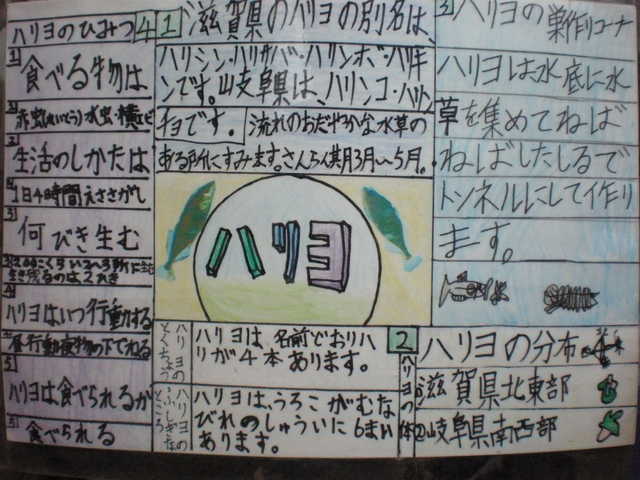 ハリヨのひみつ
4
1
食べる物は
2
赤虫
水虫・横エビ
2
生活のしかたは
1日4時間えささがし
3
何びき生む
3
生き残るのは2ひき
4
ハリヨはいつ行動する
昼行動夜物の下でねる
5
ハリヨは食べられるか
5
食べられる
1
滋賀県のハリヨの別名は、
ハリシン・ハリサバ・ハリンボ・ハリキ
ンです。山支阜県は、ハリンコ・ハリン
チョです。
流れのおだやかな水草の
ある所にすみます。さんらん期3月〜5月。
ハリヨ
ハリヨの
とくちょう
ハリヨは、名前どおりハ
リが4本あります。
ハリヨの
ふしぎな
ところ
ハリヨは、うろこがむな
びれのしゅういに6まい
あります。
3
ハリヨの巣作りコーナ
ハリヨは水底に水
草を集めてねば
ねばしたしるで
トンネルにして作り
ます。
2
ハリヨの体
ハリヨの分布
①滋賀県北東部
②岐阜県南西部